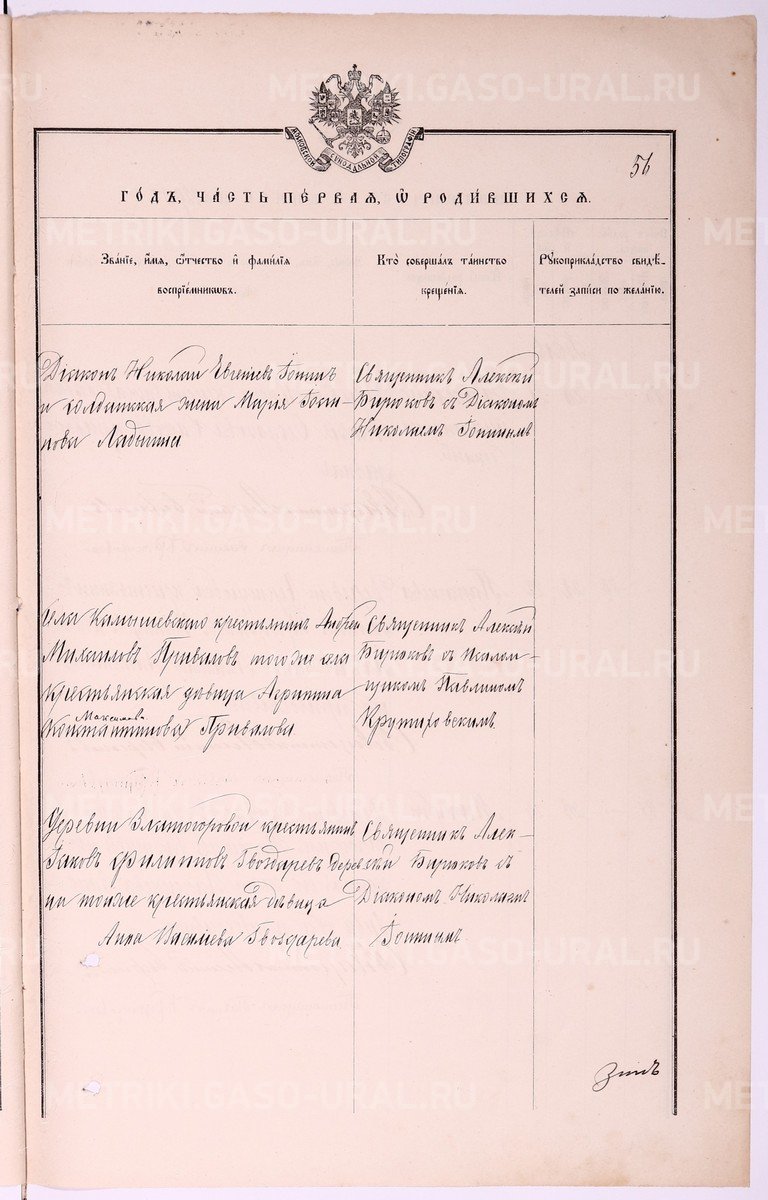 METRIKI.GASO-URAL.RU
МОСКОВСКОЙ СѴНОДАЛЬНОЙ ТИПОГРАФІИ
56
ГО́ДЪ, ЧА́СТЬ ПЕ́РВАЯ, Ѿ РОДИ́ВШИХСЯ.
Зва́нїе, и́мя, ѻ́тчество и҆ фами́лїя
воспрїе́мникѡвъ.
Кто̀ соверша́лъ та́инство
креще́нїя.
Рꙋкоприкла́дство свидѣ́-
телей за́писи по жела́нїю.
Діаконъ Николай Евгеніев
и солдатская жена Марія Іоан-
нова Ладыгина
Священникъ Алексѣй
Бирюковъ съ Діакономъ
Николаемъ
Села Камышевскаго крестьянинъ Андрей
Михаиловъ Приваловъ тогоже села
крестьянская дѣвица Агрипина
Максимова
Константинова Привалова.
Священникъ Алексѣй
Бирюковъ съ псалом-
щикомъ Павлиномъ
Крутиховскимъ.
Деревни Златогоровой крестьянинъ
Іаковъ Филипповъ Гвоздаревъ дерев-
ни тоиже крестьянская дѣвица
Анна Васильева Гвоздарева.
Священникъ Алек-
сѣй Бирюковъ съ
Діакономъ Николаемъ